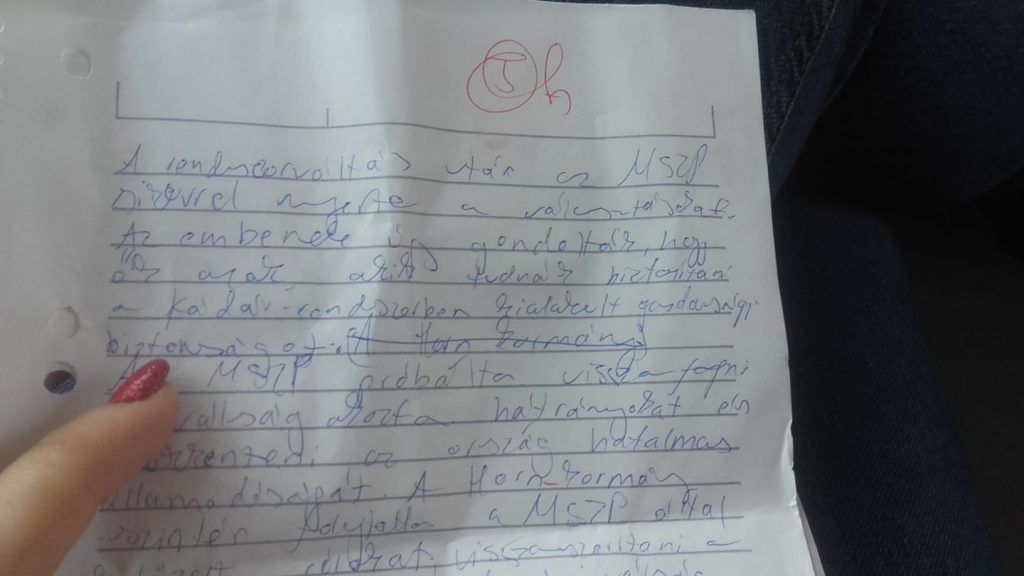 5
A rendszerváltás után az MSZP
nyerte a választásokat.
Az emberek úgy gondolták, hogy
ők azok, akik tudnák biztosítani
a Kádár-rendszerben kialakult gazdasági
biztonságot. (A Horn kormány)
Az MSZP próbálta visszafogni
válság okozta hátrányokat és
csökkenteni az ország hatalmas
államadósságát. A Horn-kormány
szintén folytatta a MSZP által
célokat. visszaszorítani a